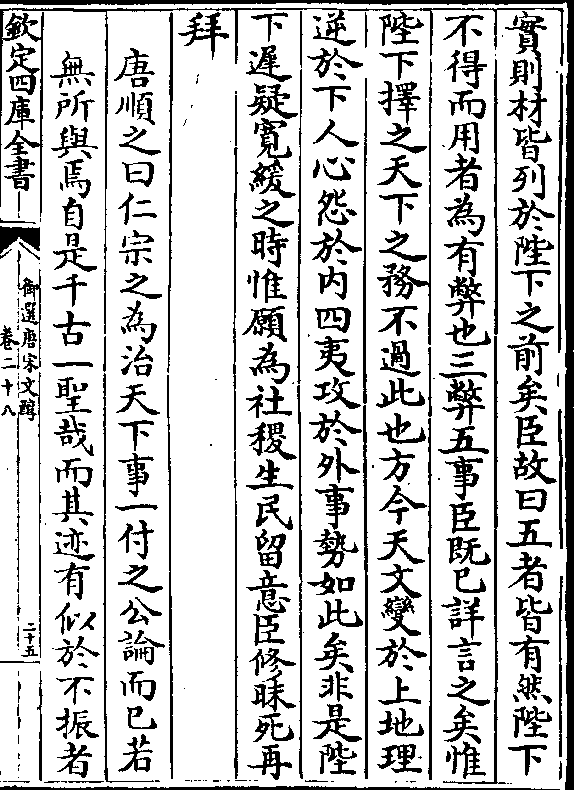 實則材皆列於陛下之前矣臣故曰五者皆有然陛下
不得而用者為有弊也三弊五事臣既已詳言之矣惟
陛下擇之天下之務不過此也方今天文變於上地理
逆於下人心怨於内四夷攻於外事勢如此矣非是陛
下遲疑寛緩之時惟願為社稷生民留意臣修昧死再
拜
唐順之曰仁宗之為治天下事一付之公論而已若
無所與焉自是千古一聖哉而其迹有似於不振者
欽定四庫全書
御選唐宋文醇
卷二十八
二十五